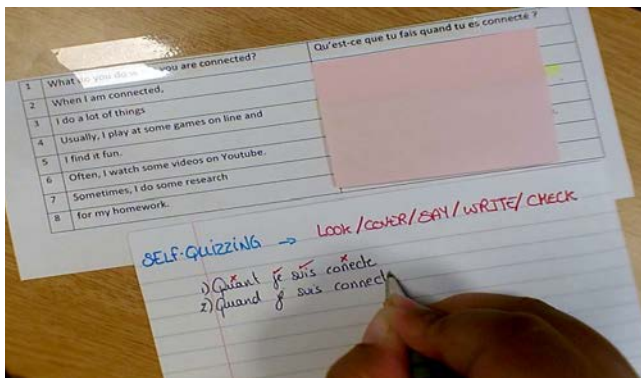 Qu'est-ce que tu fais quand tu es connecté ?
1 What do you do when you are connected?
2 When I am connected,
3 I do a lot of things
4 Usually, I play at some games on line and
5 I find it fun.
6 Often, I watch some videos on Youtube.
7 Sometimes, I do some research
8 for my homework.
SELF-QUIZZING → LOOK/COVER/SAY/WRITE/CHECK
1) Quant je suis conecte
2) Quand je suis connecte